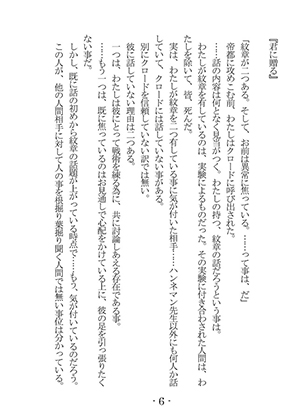 『君に贈る』
「紋章が二つある。そして、お前は異常に焦っている。……って事は、だ」
帝都に攻めこむ前、わたしはクロードに呼び出された。
……話の内容は何となく見当がつく。わたしの持つ、二つの紋章の話だろう。
わたしが紋章を二つ有しているのは、実験によるものだった。その実験に付き合わされた人間は、わ
たしを除いて、皆、死んだ。
実は、わたしが紋章を二つ有している事に気が付いた相手……ハンネマン先生以外にも何人か話
していて、クロードには話していない事がある。
別にクロードを信頼していない訳では無い。
彼に話していない理由は二つ。
一つは、わたしは彼にとって戦術を練る為に、共に討論しあえる存在である事。
……もう一つは、既に焦っているのはお見通しで心配をかけている上に、彼の足を引っ張りたく
ない事だ。
しかし、既に話の初めから紋章の話題が上がっている時点で……もう、気が付いているのだろう。
この人が、他の人間相手に対して人の事を根掘り葉掘り聞く人間では無い事位は分かっている。
- 6 -